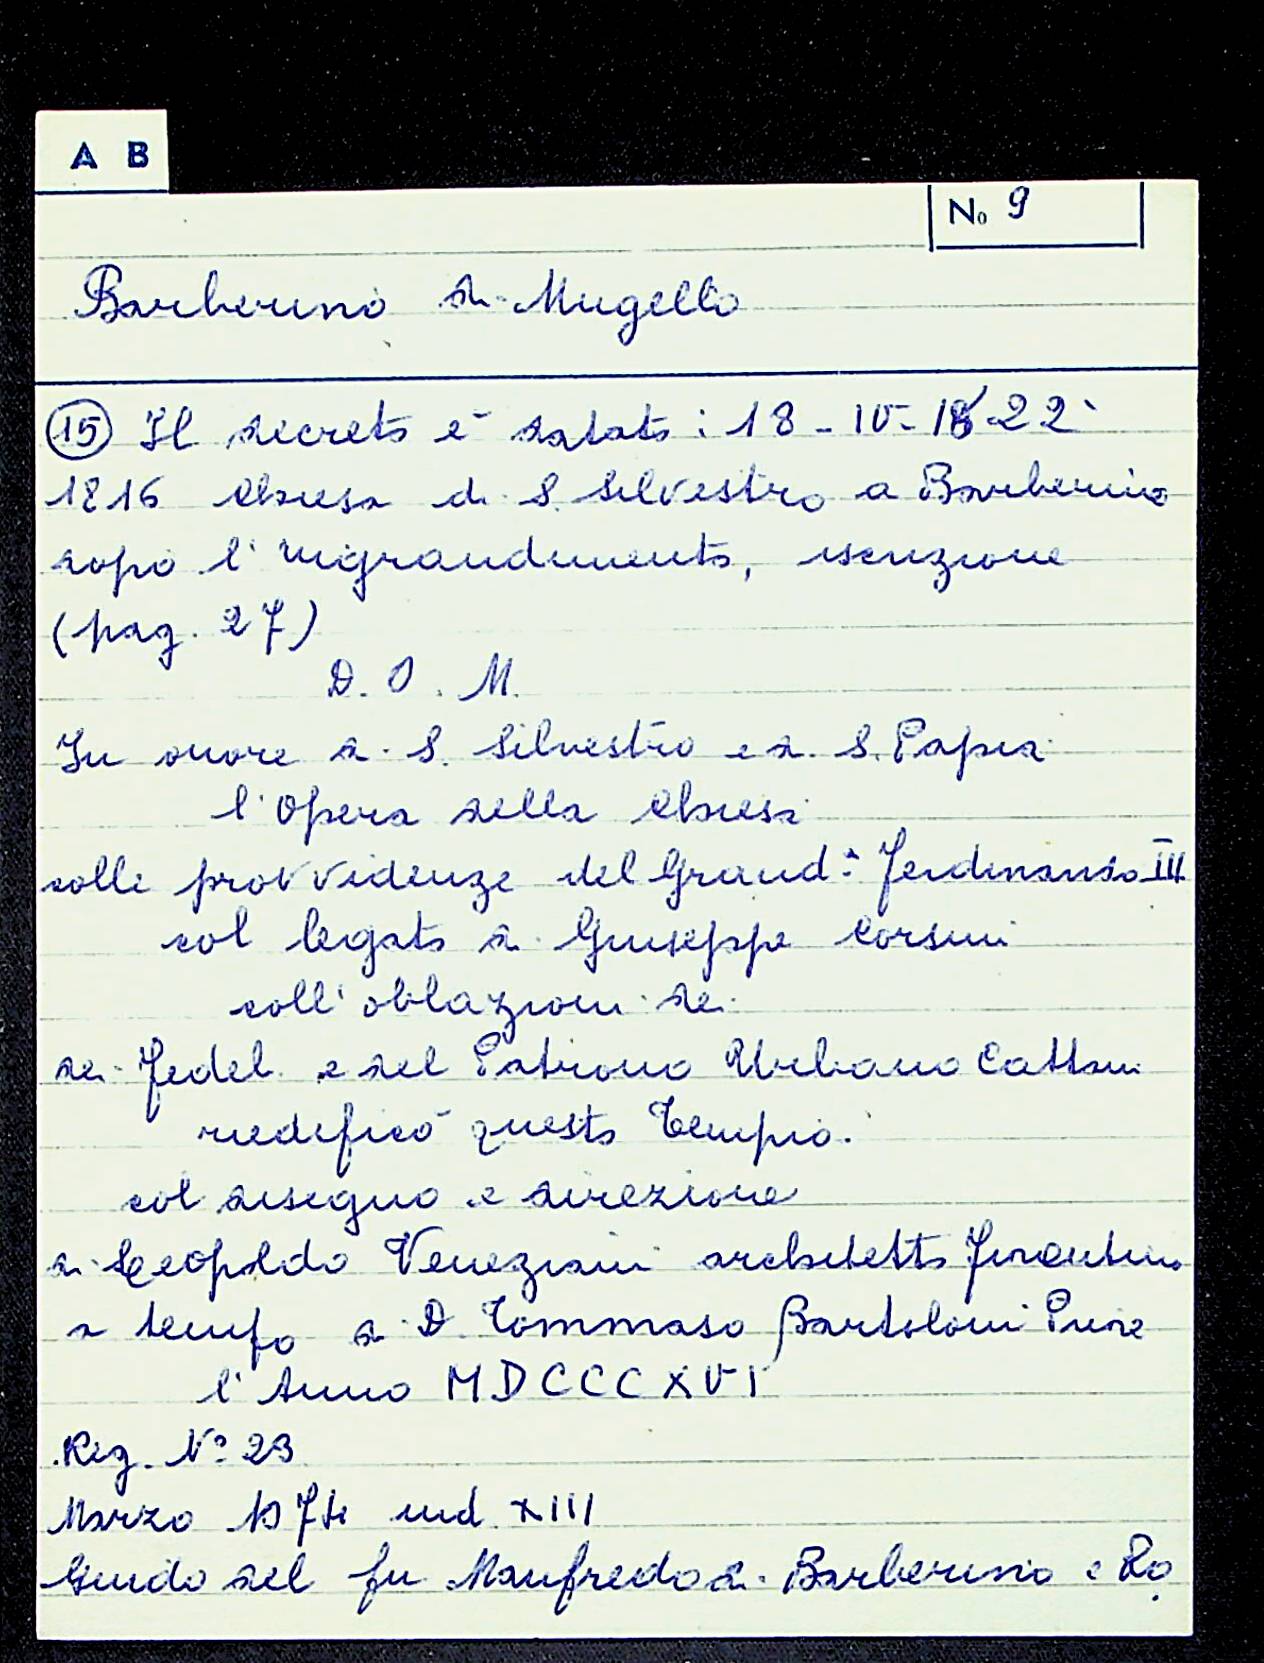 A B
No 9
Barberino di Mugello
(15) Il decreto è datato: 18-IV-1822
1816 Chiesa di S. Silvestro a Barberino
dopo l'ingrandimento, iscrizione
(pag. 27)
D. O. M.
In onore di S. Silvestro e di S. Papia
l'Opera della Chiesa
colle provvidenze del Grand.a Ferdinando III
col legato di Giuseppe Corsini
coll'oblazioni dei
dei Fedeli e del Patrono Urbano Cattani
riedificò questo Tempio.
col disegno e direzione
di Leopoldo Veneziani architetto fiorentino
a tempo di D. Tommaso Bartoloni Pievè
l'Anno MDCCCXVI
Reg. N° 23
Marzo ind. XIII
Guido del fu Manfredo di Barberino e Ro